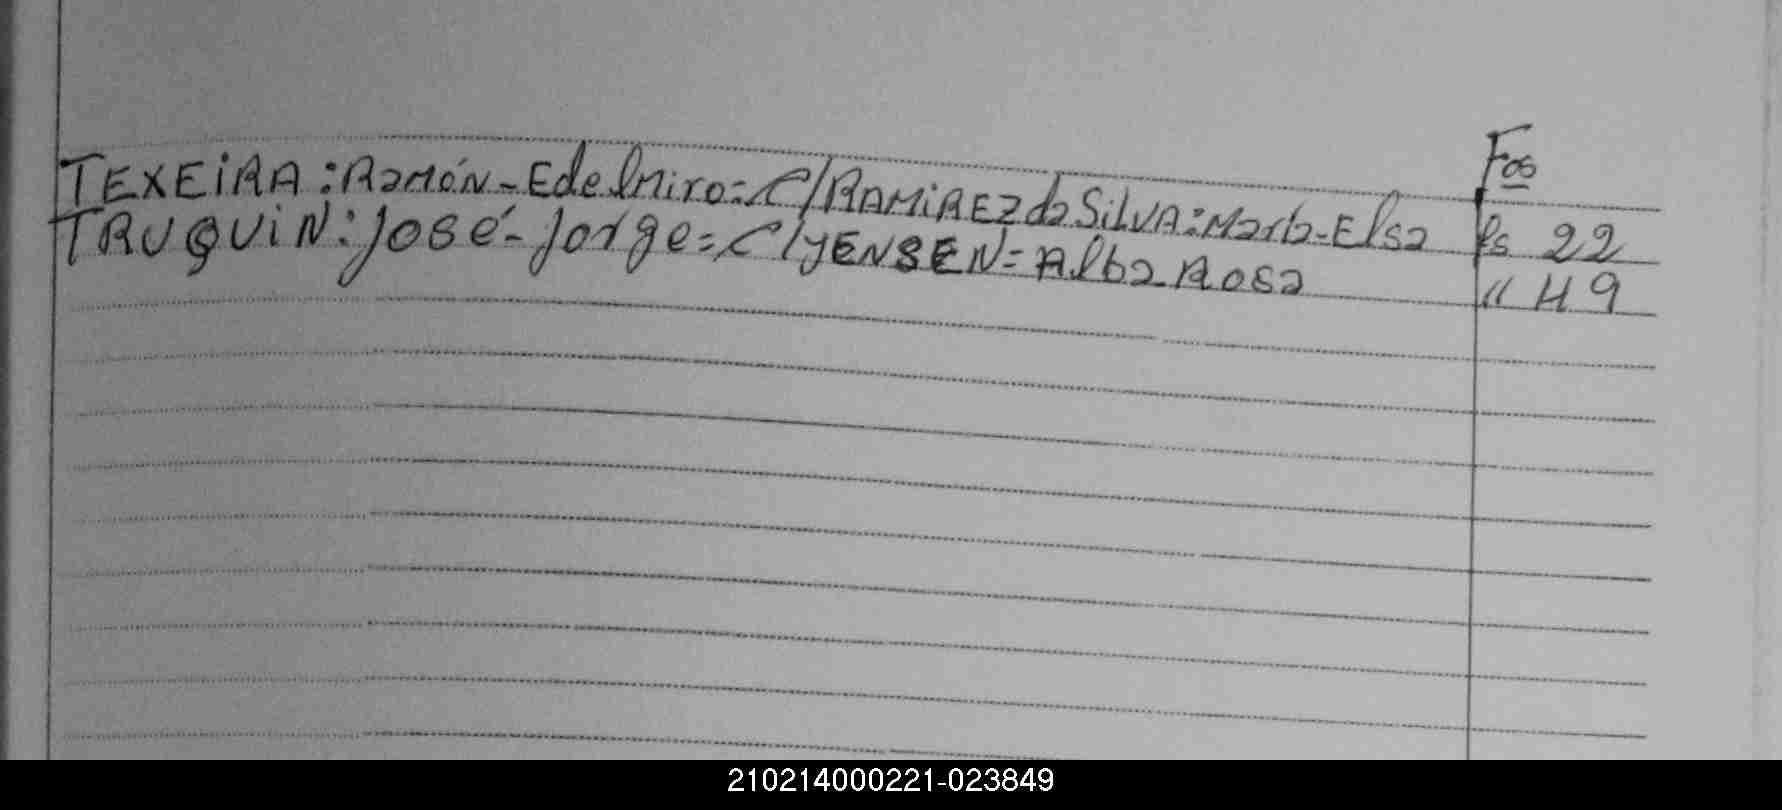 Fos
TEXEiRA: Ramón - Edelmiro = C/ RAMiREZ da SiLVA: Marta - Elsa fs 22
TRUQUiN: José - Jorge = C/ YENSEN = Alba Rosa " 49
210214000221-023849